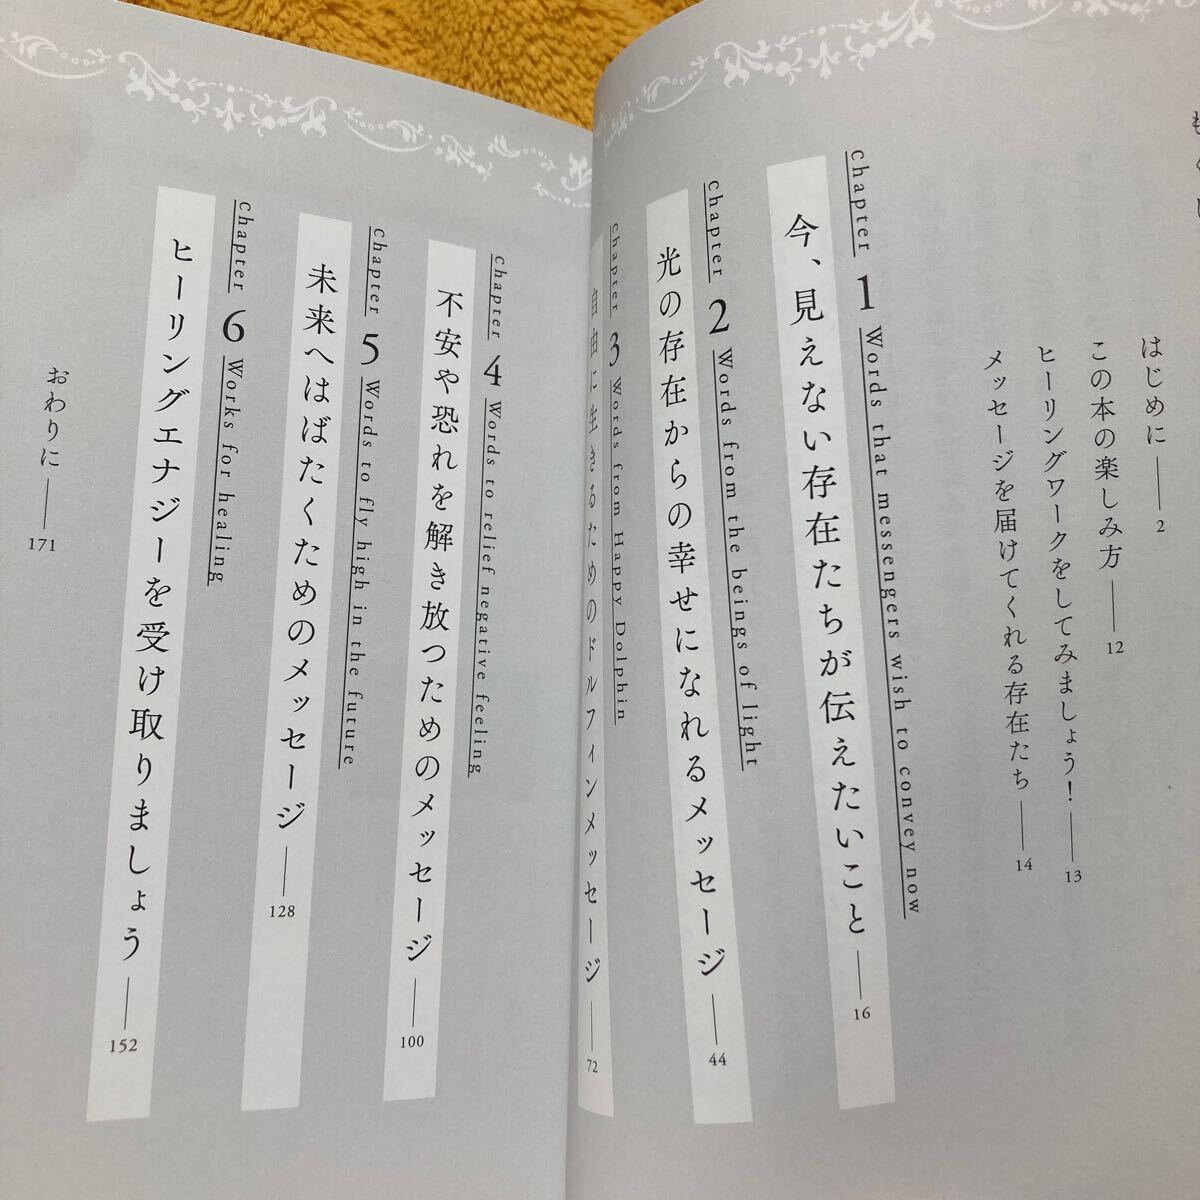 はじめに 2
この本の楽しみ方 12
ヒーリングワークをしてみましょう! 13
メッセージを届けてくれる存在たち 14
Chapter 1 Words that messengers wish to convey now
今、見えない存在たちが伝えたいこと 16
Chapter 2 Words from the beings of light
光の存在からの幸せになれるメッセージ 44
Chapter 3 Words from Happy Dolphin
自由に生きるためのドルフィンメッセージ 72
Chapter 4 Words to relief negative feeling
不安や恐れを解き放つためのメッセージ 100
Chapter 5 Words to fly high in the future
未来へはばたくためのメッセージ 128
Chapter 6 Works for healing
ヒーリングエナジーを受け取りましょう 152
おわりに 171